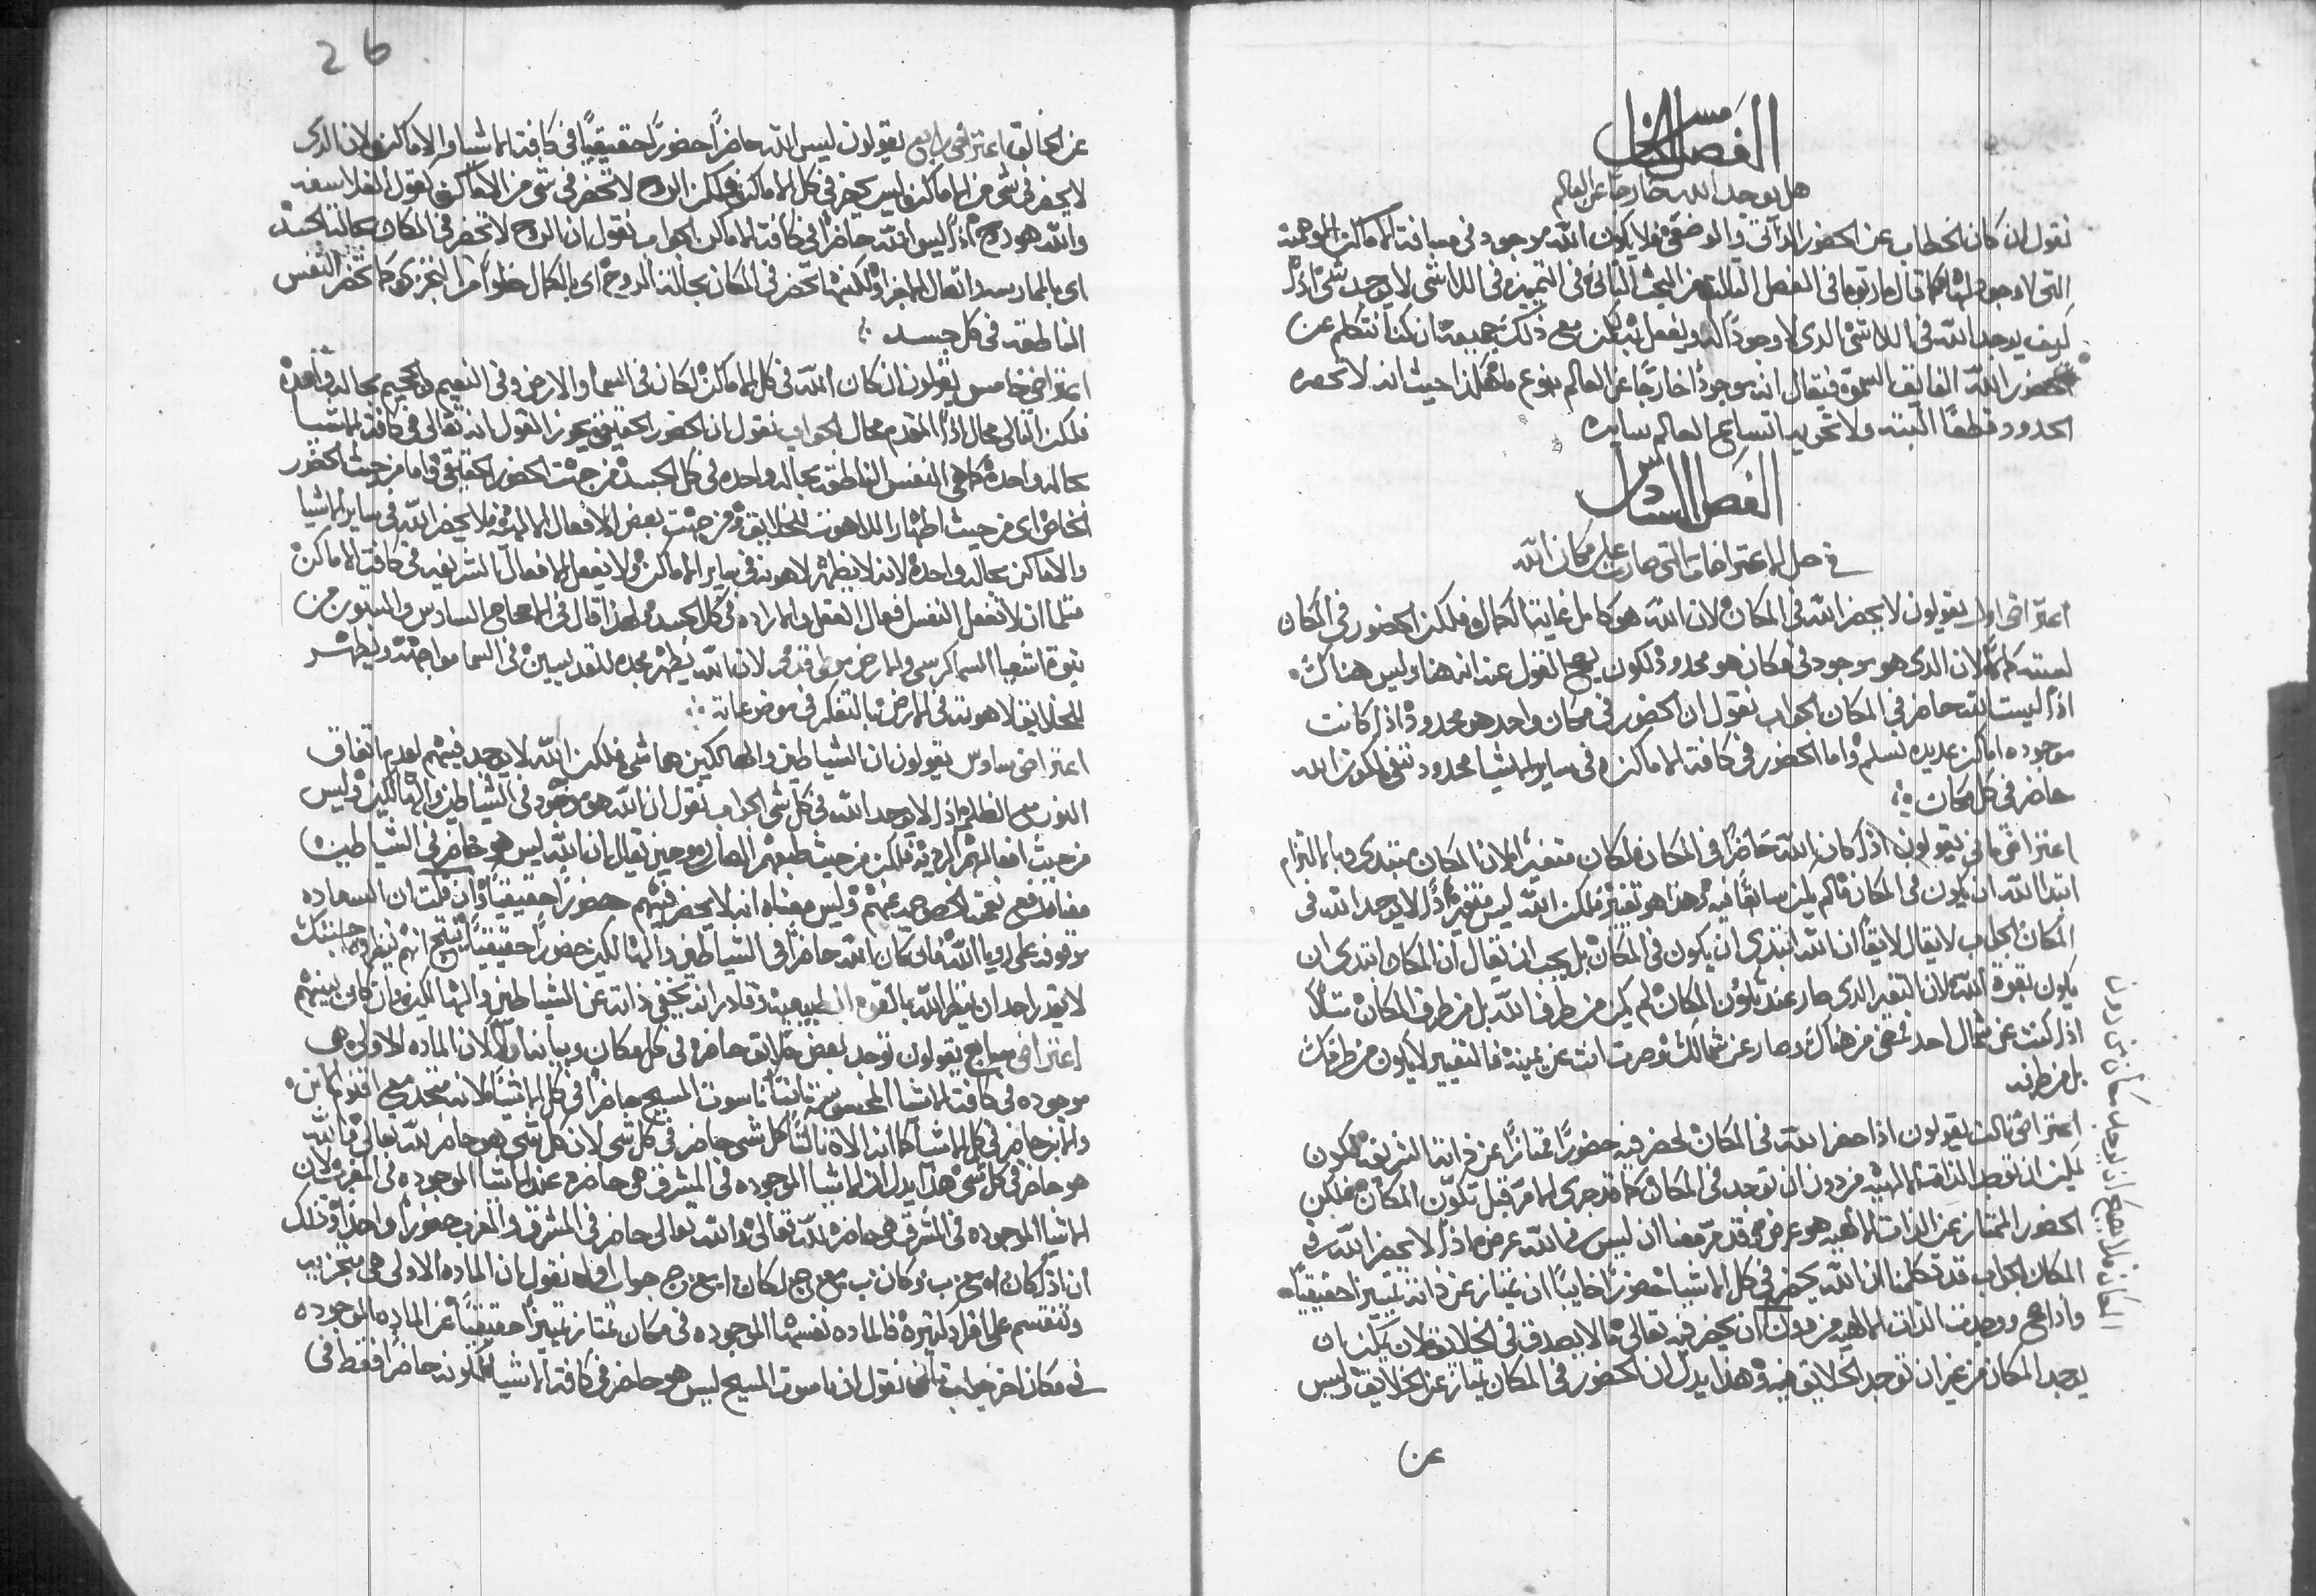 الفصل الخامس
هل يوجد الله خارجا عن العالم
نقول ان كان الخطاب عن الحضور الذاتي والوضعي فلا يكون الله موجود في مسافة الاماكن الوهمية
التي لا وجود لها كما قال ماريوما في الفصل الثالث من البحث الثاني في التمييز في اللاشي لا يوجد شي اذاً
كيف يوجد الله في اللاشي الذي لا وجوداً له ويفعل به لكن مع ذلك جميعه ان كنا نتكلم عن
حضور الله الفايق السمو فيقال انه موجوداً خارجاً عن العالم بنوع ما هكذا حيث انه لا تحصره
الحدود قطعاً البته ولا تحويه اتساع العالم سايره
الفصل السادس
في حل الاعتراضات التي صارت على مكان الله
اعتراض اول يقولون لا يحضر الله في المكان لان الله هو كامل غاية الكمال فلكن الحضور في المكان
ليسته كمالاً لان الذي هو موجود في مكان هو محدود لكون يصح القول عنه انه هنا وليس هناك
اذاً ليست الله حاضر في المكان الجواب نقول ان الحضور في مكان واحد هو محدود اذا كانت
موجوده اماكن عديده نسلم واما الحضور في كافة الاماكن وفي ساير الاشيا محدود ننفي لكون الله
حاضر في كل مكان
اعتراض ثاني يقولون اذا كان الله حاضراً في المكان لكان متغيراً لان المكان مبتدي وبالالتزام
ابتدا الله ان يكون في المكان مالم يكن سابقاً فيه وهذا هو تغيير فلكن الله ليس متغيراً اذاً لا يوجد الله في
المكان الجواب لا يقال لايقاً ان الله ابتدى ان يكون في المكان بل يجب ان يقال ان المكان ابتدى ان
يكون بقوة الله لان التغير الذي صار عند تكون المكان لم يكن من طرف الله بل من طرف المكان مثلاً
اذا كنت عن شمال احد فمضى من هناك وصار عن شمالك وصرت انت عن يمينه فالتغيير لا يكون من طرفك
بل من طرفه
اعتراض ثالث يقولون اذا حضر الله في المكان لحضر فيه حضوراً ممتازاً عن ذاته الشريفه لكون
يمكن ان توجد الذات الالهيه من دون ان توجد في المكان كما قد جرى الامر قبل تكون المكان فلكن
الحضور الممتاز عن الذات الالهيه هو عرض وقد مر معنا ان ليس في الله عرض اذاً لا يحضر الله في
المكان الجواب قد تكلمنا ان الله يحضر في كل الاشيا حضوراً خايباً ان يمتاز عن ذاته تمييزاً حقيقياً
واذا صح ووجدت الذات الالهيه من دون ان يحضر فيه تعالى فالا يصدق في الخلايق لان يمكن ان
يوجد المكان من غير ان توجد الخلايق فيه وهذا يدل ان الحضور في المكان يمتاز عن الخلايق وليس
عن
المكان فلا يصح انه يوجد مكان من دون
26
عن الخالق اعتراض رابع يقولون ليس الله حاضراً حضوراً حقيقياً في كافة الاشيا والاماكن لان الذي
لا يحضر في شي من الاماكن ليس يحضر في كل الاماكن فلكن الروح لا تحضر في شي من الاماكن كقول الفلاسفه
والله هو روح اذاً ليس الله حاضراً في كافة الاماكن الجواب نقول ان الروح لا تحضر في المكان بحالة الجسد
اي بالممارسه واتصال الاجزا ولكنها تحضر في المكان بحالة الروح اي بالكمال خلواً من التجزي كما تحضر النفس
الناطقه في كل جسد
اعتراض خامس يقولون ان كان الله في كل الاماكن لكان في السما والارض وفي النعيم والجحيم بحاله واحده
فلكن التالي محال اذاً المقدم محال الجواب نقول ان الحضور الحقيقي يجوز القول انه تعالى في كافة الاشيا
بحاله واحده كما هي النفس الناطقه بحاله واحده في كل الجسد من جهت الحضور الحقيقي واما من حيث الحضور
الخاص اي من حيث اظهار اللاهوت للخلايق ومن جهت بعض الافعال الالهيه فلا يحضر الله في ساير الاشيا
والاماكن بحاله واحده لانه لا يظهر لاهوته في ساير الاماكن ولا يفعل الافعال الشريفه في كافة الاماكن
مثلما ان لا تفعل النفس افعال العقل والاراده في كل الجسد ولهذا قال في الاصحاح السادس والستون من
نبوة اشعيا السما كرسي والارض موطي قدمي لان الله يظهر مجده للقديسين في السما مواجهة ويظهر
للخلايق لاهوته في الارض بالتفكر في موضوعاته
اعتراض سادس يقولون ان الشياطين والهالكين هما شي فلكن الله لا يوجد فيهم لعدم اتفاق
النور مع الظلام اذاً لا يوجد الله في كل شي الجواب نقول ان الله هو موجود في الشياطين والهالكين وليس
من حيث افعالهم الرديه فلكن من حيث طبعهم الصالح وحين يقال ان الله ليس هو حاضر في الشياطين
معناه رفع نعمته الخصوصيه عنهم وليس معناه انه لا يحضر فيهم حضوراً حقيقياً وان قلت ان السعاده
موقوفه على رويا الله فان كان الله حاضراً في الشياطين والهالكين حضوراً حقيقياً ينتج انهم ينظروه حينئذ
لا يقدر احد ان ينظر الله بالقوه الطبيعيه وقادر انه يخفي ذاته عن الشياطين والهالكين وان كان بينهم
اعتراض سابع يقولون توجد بعض خلايق حاضره في كل مكان وبيانه اولاً لان الماده الاولى هي
موجوده في كافة الاشيا المحسوسه ثانياً ناسوت المسيح حاضراً في كل الاشيا لانه متحد مع اقنوم الابن
والابن حاضر في كل الاشيا كما انه الاه ثالثاً كل شي حاضر في كل شي لان كل شي هو حاضر لله تعالى والله
هو حاضر في كل شي هذا يدل ان الاشيا الموجوده في المشرق هي حاضره عند الاشيا الموجوده في المغرب لان
الاشيا الموجوده في الشرق هي حاضره لله تعالى والله تعالى حاضر في المشرق والمغرب حضوراً واحداً وذلك
ان اذا كان ا مع ب وكان ب مع ج لكان ا مع ج جواب اول نقول ان الماده الاولى هي متجزيه
وتنقسم على افراد كثيره فالماده نفسها الموجوده في مكان تمتاز تمييزاً حقيقياً عن الماده الموجوده
في مكان اخر جواب ثاني نقول ان ناسوت المسيح ليس هو حاضر في كافة الاشيا لكونه حاضراً فقط في